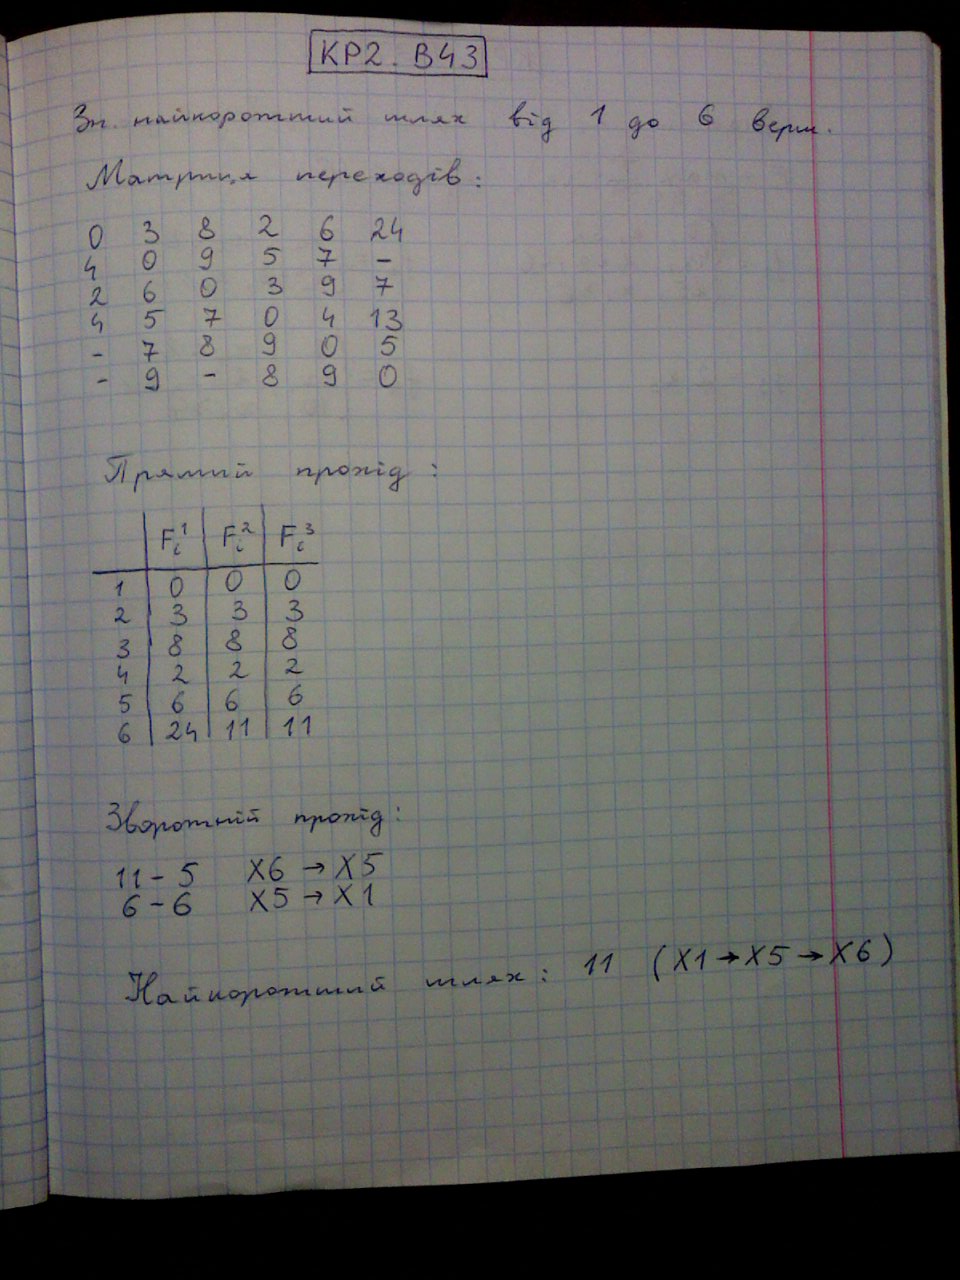 КР2. В43
Зн. найкоротший шлях від 1 до 6 верш.
Матриця переходів:
0 3 8 2 6 24
4 0 9 5 7 -
2 6 0 3 9 7
4 5 7 0 4 13
- 7 8 9 0 5
- 9 - 8 9 0
Прямий прохід:
Fi¹ Fi² Fi³
1 0 0 0
2 3 3 3
3 8 8 8
4 2 2 2
5 6 6 6
6 24 11 11
Зворотній прохід:
11 - 5 X6 → X5
6 - 6 X5 → X1
Найкоротший шлях: 11 (X1 → X5 → X6)